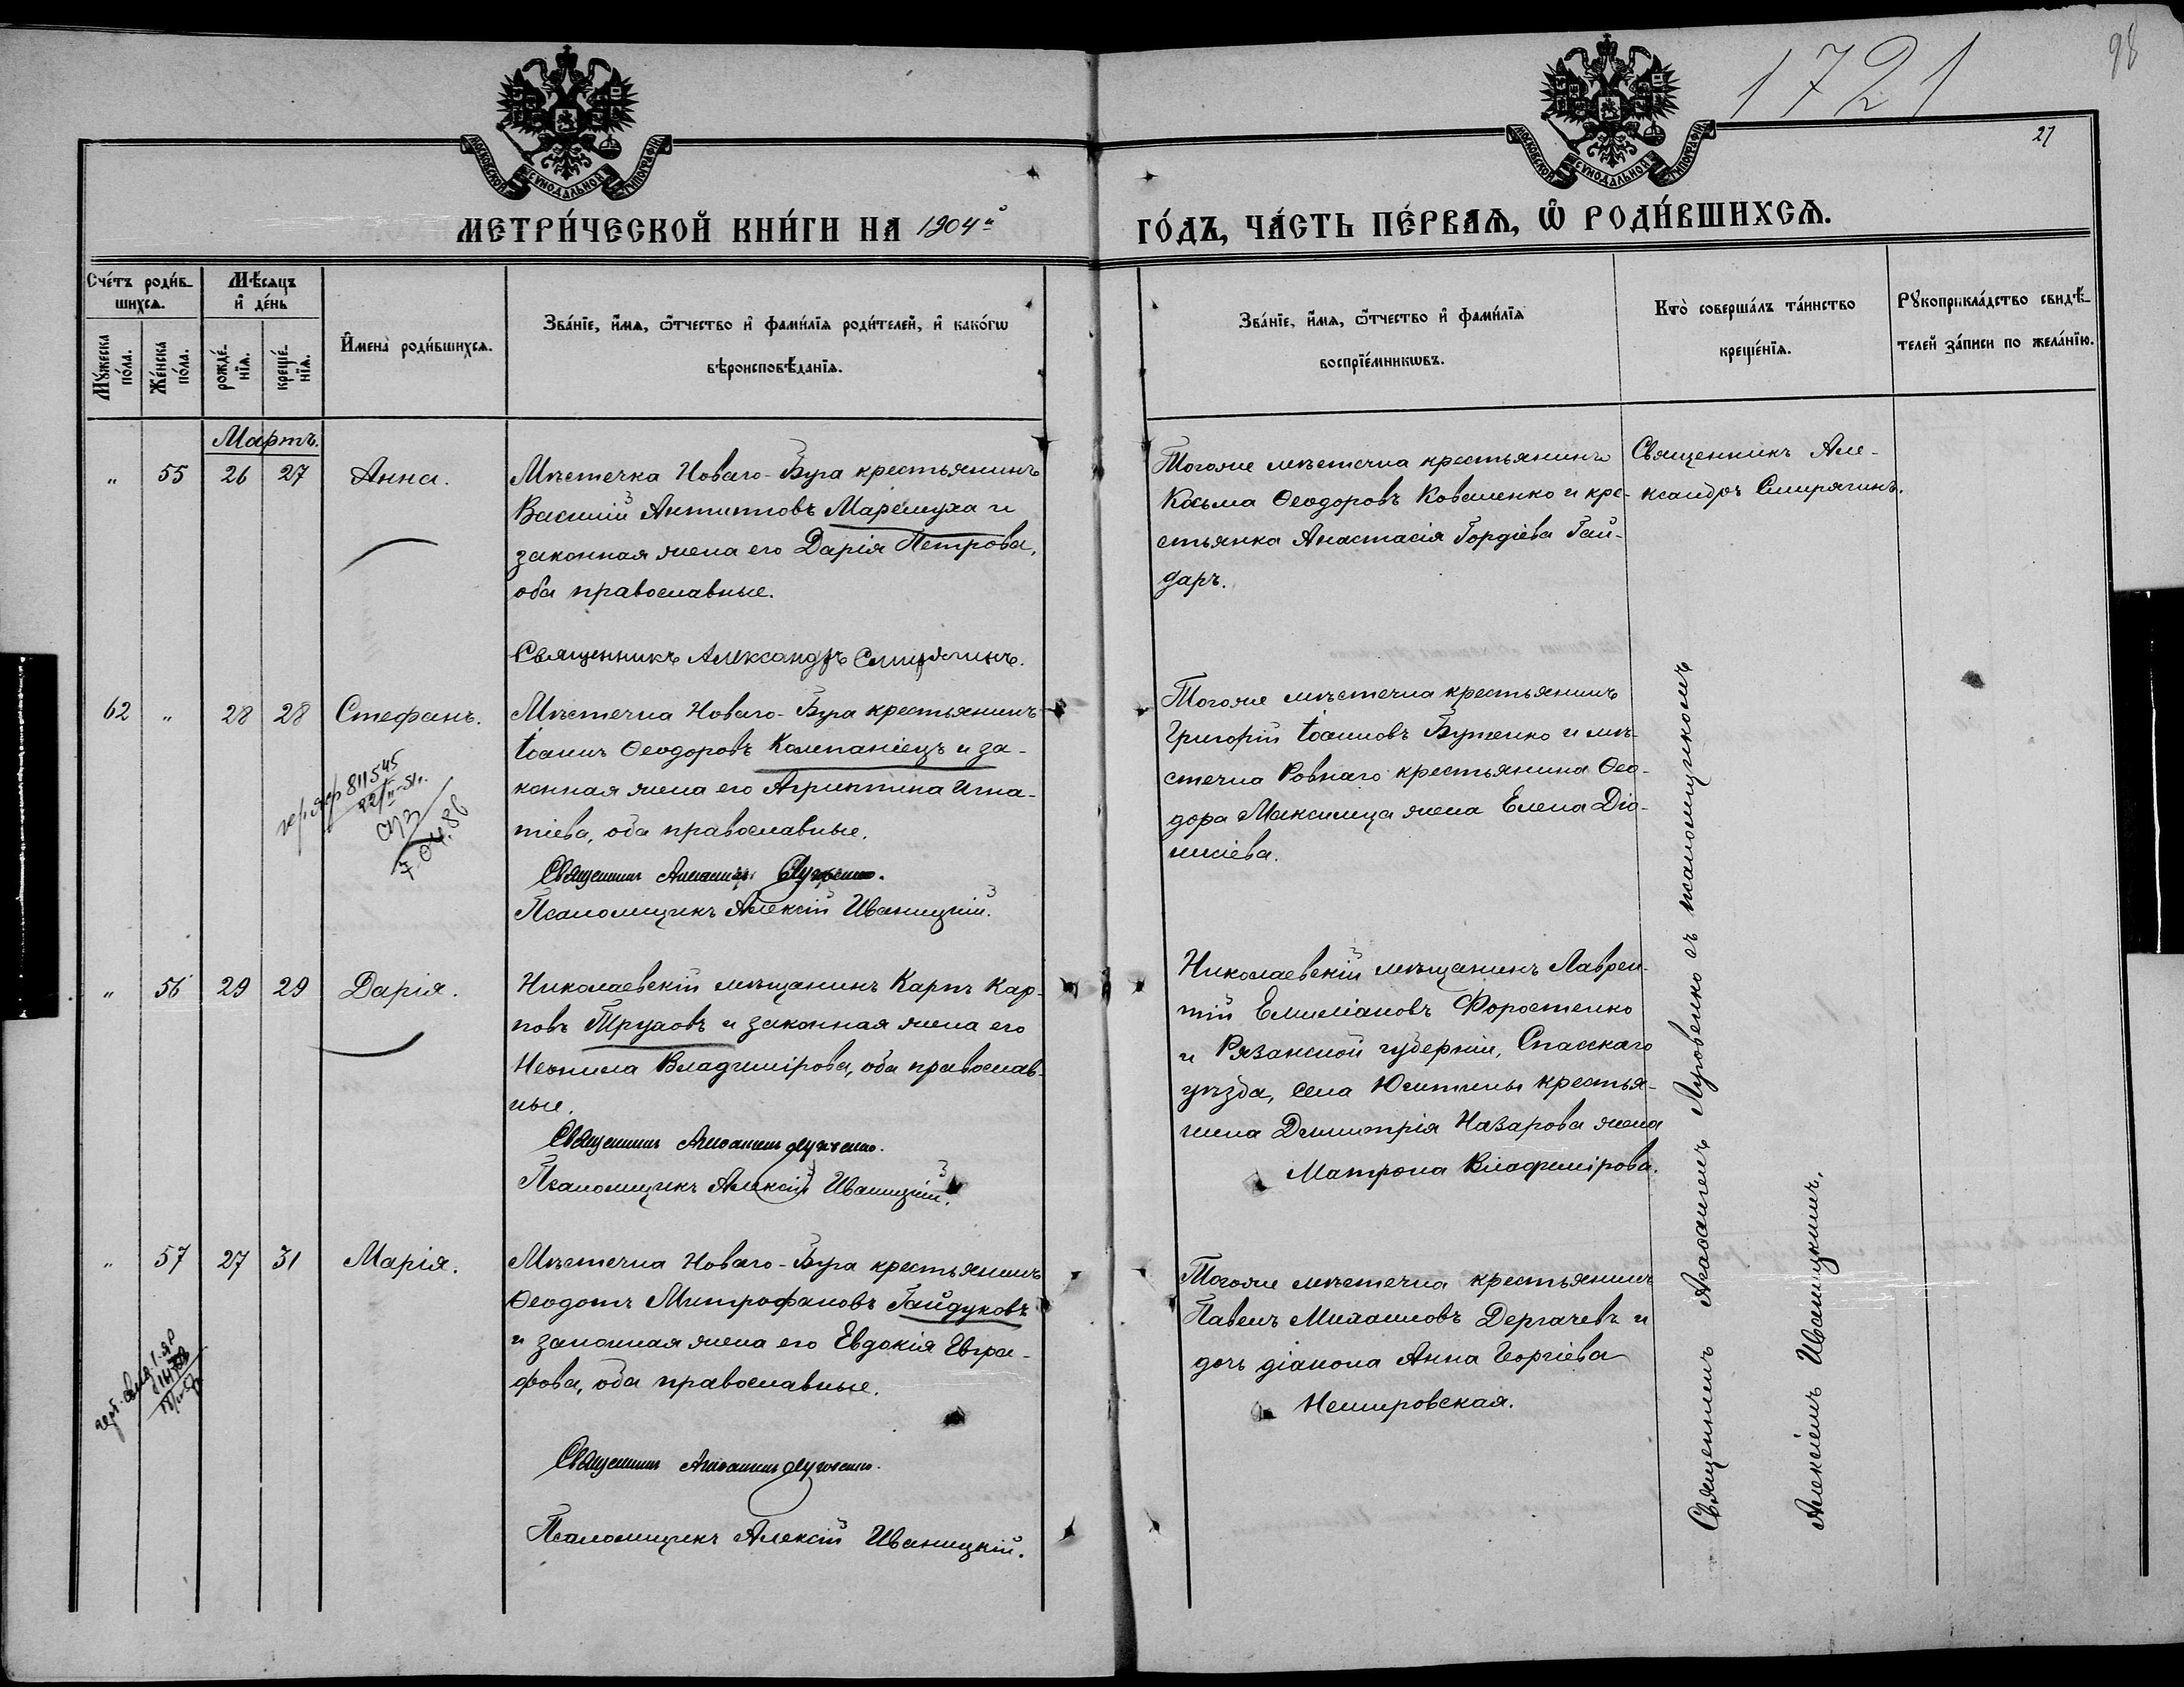 1721
98
27
МОСКОВСКОЙ СѴНОДАЛЬНОЙ ТИПОГРАФІИ
МОСКОВСКОЙ СѴНОДАЛЬНОЙ ТИПОГРАФІИ
МЕТРИ́ЧЕСКОЙ КНИ́ГИ НА 1904й ГО́ДЪ, ЧА́СТЬ ПЕ́РВАѦ, Ѡ РОДИ́ВШИХСѦ.
Сче́тъ роди́вшихсѧ.
Мꙋ́жеска по́ла.
Же́нска по́ла.
Мѣ́сѧцъ и҆ де́нь
рожде́нїѧ.
креще́нїѧ.
И҆мена̀ роди́вшихсѧ.
Зва́нїе, и҆́мѧ, ѻ҆́тчество и҆ фами́лїѧ роди́телей, и҆ како́гѡ
вѣроисповѣ́данїѧ.
Зва́нїе, и҆́мѧ, ѻ҆́тчество и҆ фами́лїѧ
воспрїе́мникѡвъ.
Кто̀ соверша́лъ та́инство
креще́нїѧ.
Рꙋкоприкла́дство свидѣ́телей за́писи по жела́нїю.
Мартъ.
" 55 26 27 Анна.
Мѣстечка Новаго-Буга крестьянинъ
Василій Антиповъ Маремуха и
законная жена его Дарія Петрова,
оба православные.
Священникъ Александръ Смирягинъ.
Тогоже мѣстечка крестьянинъ
Косьма Ѳеодоровъ Коваленко и кре-
стьянка Анастасія Гордіева Гай-
даръ.
Священникъ Але-
ксандръ Смирягинъ.
62 " 28 28 Стефанъ.
811545
7.04.86
Мѣстечка Новаго-Буга крестьянинъ
Іоаннъ Ѳеодоровъ Компаніецъ и за-
конная жена его Агриппина Игна-
тіева, оба православные.
Священникъ
Псаломщикъ Алексій Иваницкій.
Тогоже мѣстечка крестьянинъ
Григорій Іоанновъ Бутенко и мѣ-
стечка Ровнаго крестьянина Ѳео-
дора Максимца жена Елена Діо-
нисіева.
" 56 29 29 Дарія.
Николаевскій мѣщанинъ Карпъ Кар-
повъ Труховъ и законная жена его
Неонила Владимірова, оба православ-
ные.
Священникъ
Псаломщикъ Алексій Иваницкій.
Николаевскій мѣщанинъ Лаврен-
тій Емиліановъ Форостенко
и Рязанской губерніи, Спасскаго
уѣзда, села крестья-
нина Димитрія Назарова жена
Матрона Владимірова.
" 57 27 31 Марія.
Мѣстечка Новаго-Буга крестьянинъ
Ѳеодотъ Митрофановъ Гайдуковъ
и законная жена его Евдокія Евгра-
фова, оба православные.
Священникъ
Псаломщикъ Алексій Иваницкій.
Тогоже мѣстечка крестьянинъ
Павелъ Михаиловъ Дергачевъ и
дочь діакона Анна Георгіева
Немировская.
Священникъ съ псаломщикомъ
Алексіемъ Иваницкимъ.